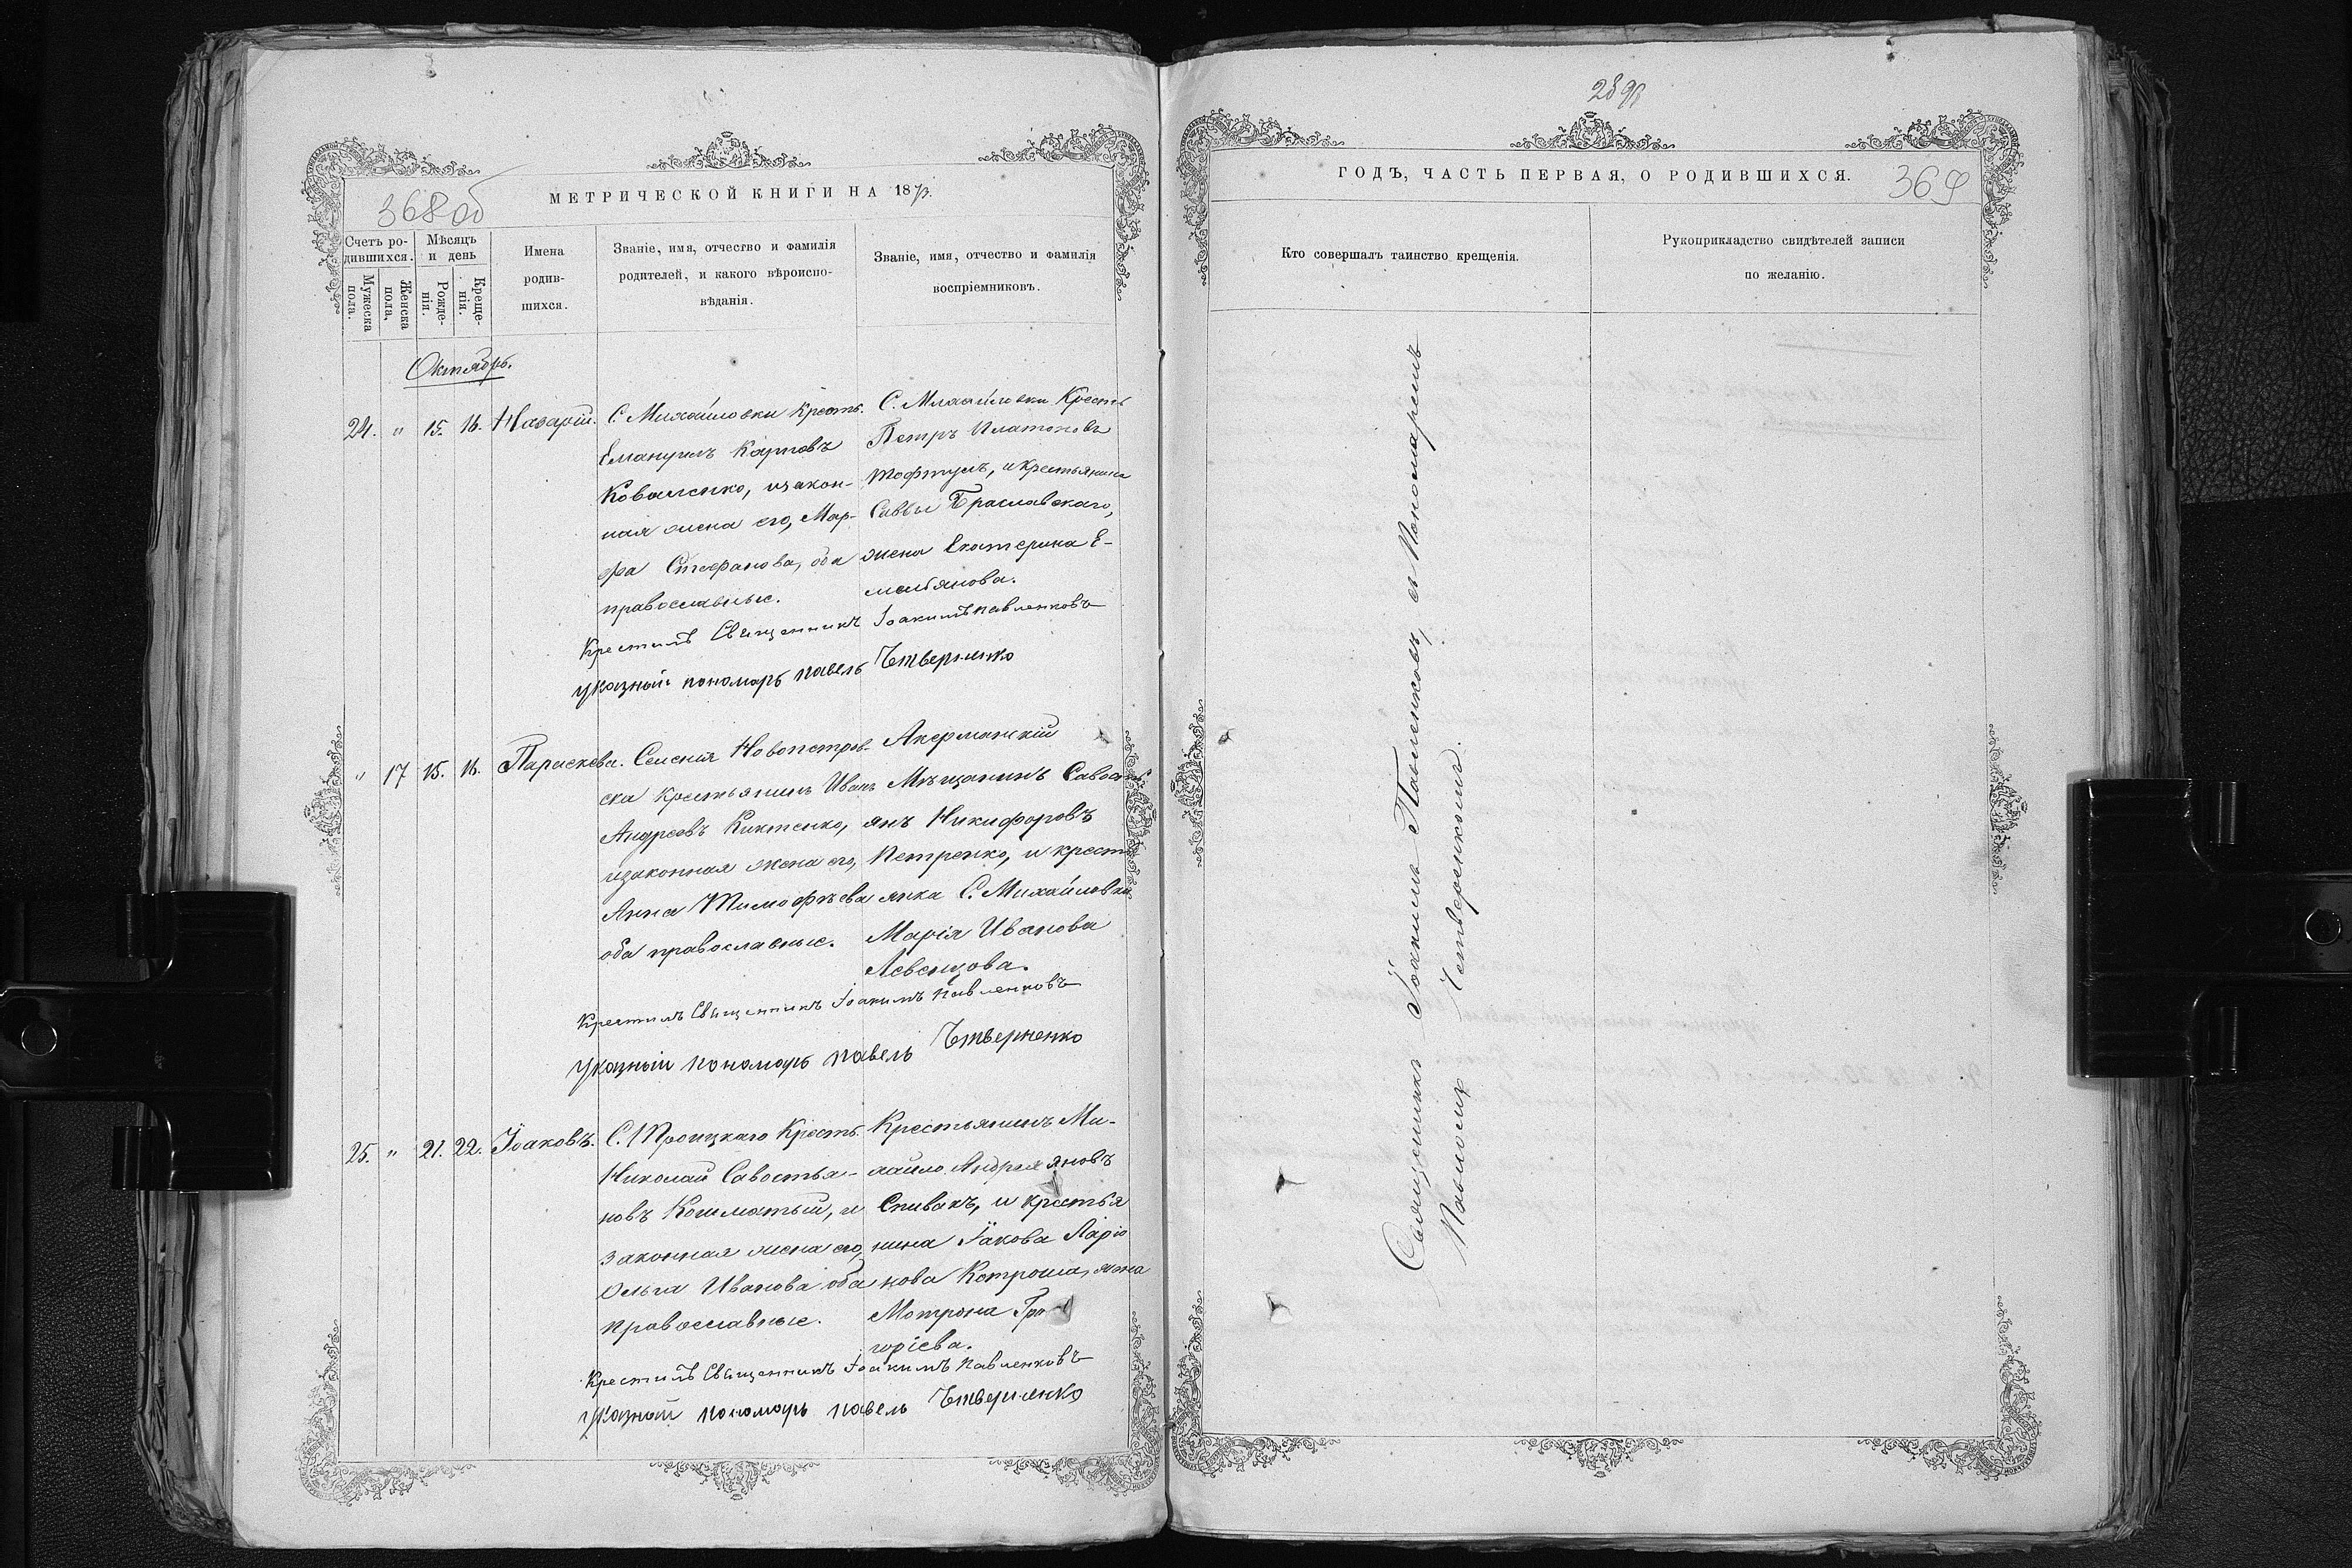 368 об
МЕТРИЧЕСКОЙ КНИГИ НА 187
Счетъ ро-
дившихся.
Мужеска
пола.
Женска
пола,
Мѣсяцъ
и день
Рожде-
нія.
Креще-
нія.
Имена
родив-
шихся.
Званіе, имя, отчество и фамилія
родителей, и какого вѣроиспо-
вѣданія.
Званіе, имя, отчество и фамилія
воспріемниковъ.
Октябрь.
24. " 15. 16. Назарій.
С. Михайловки крестъ.
Емануилъ Карповъ
Коваленко, изакон-
ная жена его, Мар-
фа Стефанова, оба
православные.
С. Михайловки Крестъ
Петръ Платоновъ
Тофтулъ, и крестьянина
Саввы Браславскаго,
жена Екатерина Е-
мельянова.
Крестилъ Священникъ Іоакимъ Павленковъ
Указный пономарь павелъ Чтверненко
" 17 15. 16. Параскева.
Селенія Новопетров-
ска крестьянинъ Иванъ
Андреевъ Киктенко,
изаконная жена его,
Анна Тимофѣева
оба православные.
Акерманскій
Мѣщанинъ Савость
янъ Никифоровъ
Петренко, и крестъ
янка С. Михайловки
Марія Иванова
Левенцова.
Крестилъ Священникъ Іоакимъ Павленковъ
Указный пономарь павелъ Чтверненко
25. " 21. 22. Іоаковъ.
С. Троицкаго Крестъ.
Николай Савостья-
новъ Кошматый, и
законная жена его,
Ольга Иванова оба
православные.
Крестьянинъ Ми-
хайло Андреяновъ
Спивакъ, и крестья
нина Іакова Ларіо
нова Котроша, жена
Мотрона Гри
горіева.
Крестилъ Священникъ Іоакимъ Павленковъ
Указный пономарь павелъ Чтверненко
369
ГОДЪ, ЧАСТЬ ПЕРВАЯ, О РОДИВШИХСЯ.
Кто совершалъ таинство крещенія.
Рукоприкладство свидѣтелей записи
по желанію.
Священникъ Іоакимъ Павленковъ, съ Пономаремъ
Павломъ Четверенкомъ.